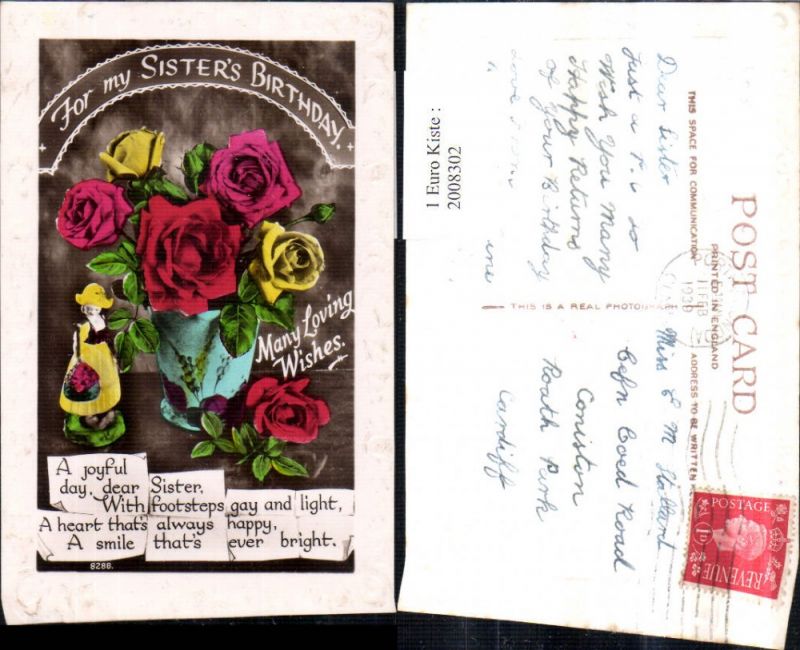 For my SISTER'S BIRTHDAY.
Many Loving
Wishes.
A joyful
day, dear Sister,
With footsteps gay and light,
A heart that's always happy,
A smile that's ever bright.
8288.
1 Euro Kiste :
2008302
POST CARD
PRINTED IN ENGLAND
THIS SPACE FOR COMMUNICATION
ADDRESS TO BE WRITTEN
THIS IS A REAL PHOTO
Dear Sister
Just a so
Wish You Many
Happy Returns
of Your Birthday
love
Miss E M
Cefn Coed Road
Coniston
Roath Park
Cardiff
11 FEB
1939
POSTAGE
1D
REVENUE